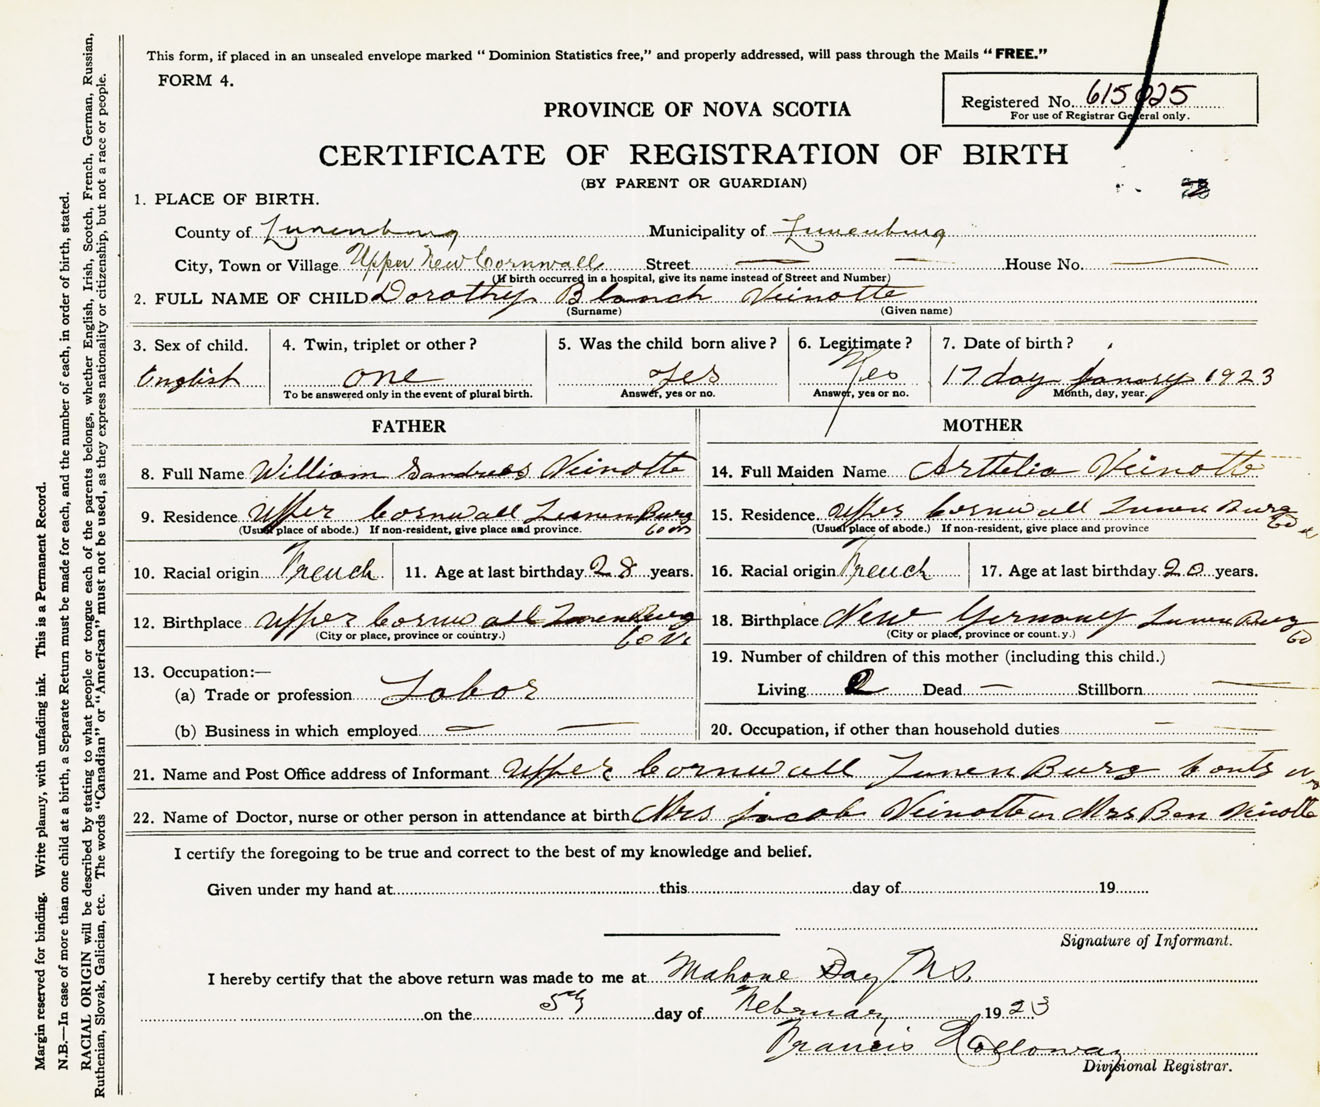 This form, if placed in an unsealed envelope marked “ Dominion Statistics free,” and properly addressed, will pass through the Mails “ FREE.”
FORM 4.
Registered No. 615025
For use of Registrar General only.
PROVINCE OF NOVA SCOTIA
CERTIFICATE OF REGISTRATION OF BIRTH
(BY PARENT OR GUARDIAN)
1. PLACE OF BIRTH.
County of Lunenburg Municipality of Lunenburg
City, Town or Village Upper New Cornwall Street — — House No. —
(If birth occurred in a hospital, give its name instead of Street and Number)
2. FULL NAME OF CHILD Dorothy Blanch Veinotte
(Surname) (Given name)
3. Sex of child. 4. Twin, triplet or other? 5. Was the child born alive? 6. Legitimate? 7. Date of birth?
English one yes Yes 17 day Janary 1923
To be answered only in the event of plural birth. Answer, yes or no. Answer, yes or no. Month, day, year.
FATHER MOTHER
8. Full Name William Veinotte 14. Full Maiden Name Veinotte
9. Residence Upper Cornwall LunenBurg 15. Residence Upper Cornwall LunenBurg Co
(Usual place of abode.) If non-resident, give place and province. (Usual place of abode.) If non-resident, give place and province
10. Racial origin French 11. Age at last birthday 28 years. 16. Racial origin French 17. Age at last birthday 20 years.
12. Birthplace Upper Cornwall LunenBurg 18. Birthplace New Germany LunenBurg Co
(City or place, province or country.) (City or place, province or count.y.)
13. Occupation:—
(a) Trade or profession Labor
(b) Business in which employed — —
19. Number of children of this mother (including this child.)
Living 2 Dead — Stillborn —
20. Occupation, if other than household duties —
21. Name and Post Office address of Informant Upper Cornwall LunenBurg
22. Name of Doctor, nurse or other person in attendance at birth Mrs Jacob Veinotte Mrs Ben Veinotte
I certify the foregoing to be true and correct to the best of my knowledge and belief.
Given under my hand at this day of 19
Signature of Informant.
I hereby certify that the above return was made to me at Mahone Bay N.S.
on the 5th day of February 1923
Francis Holloway
Divisional Registrar.
Margin reserved for binding. Write plainly, with unfading ink. This is a Permanent Record.
N.B.—In case of more than one child at a birth, a Separate Return must be made for each, and the number of each, in order of birth, stated.
RACIAL ORIGIN will be described by stating to what people or tongue each of the parents belongs, whether English, Irish, Scotch, French, German, Russian,
Ruthenian, Slovak, Galician, etc. The words “Canadian” or “American” must not be used, as they express nationality or citizenship, but not a race or people.